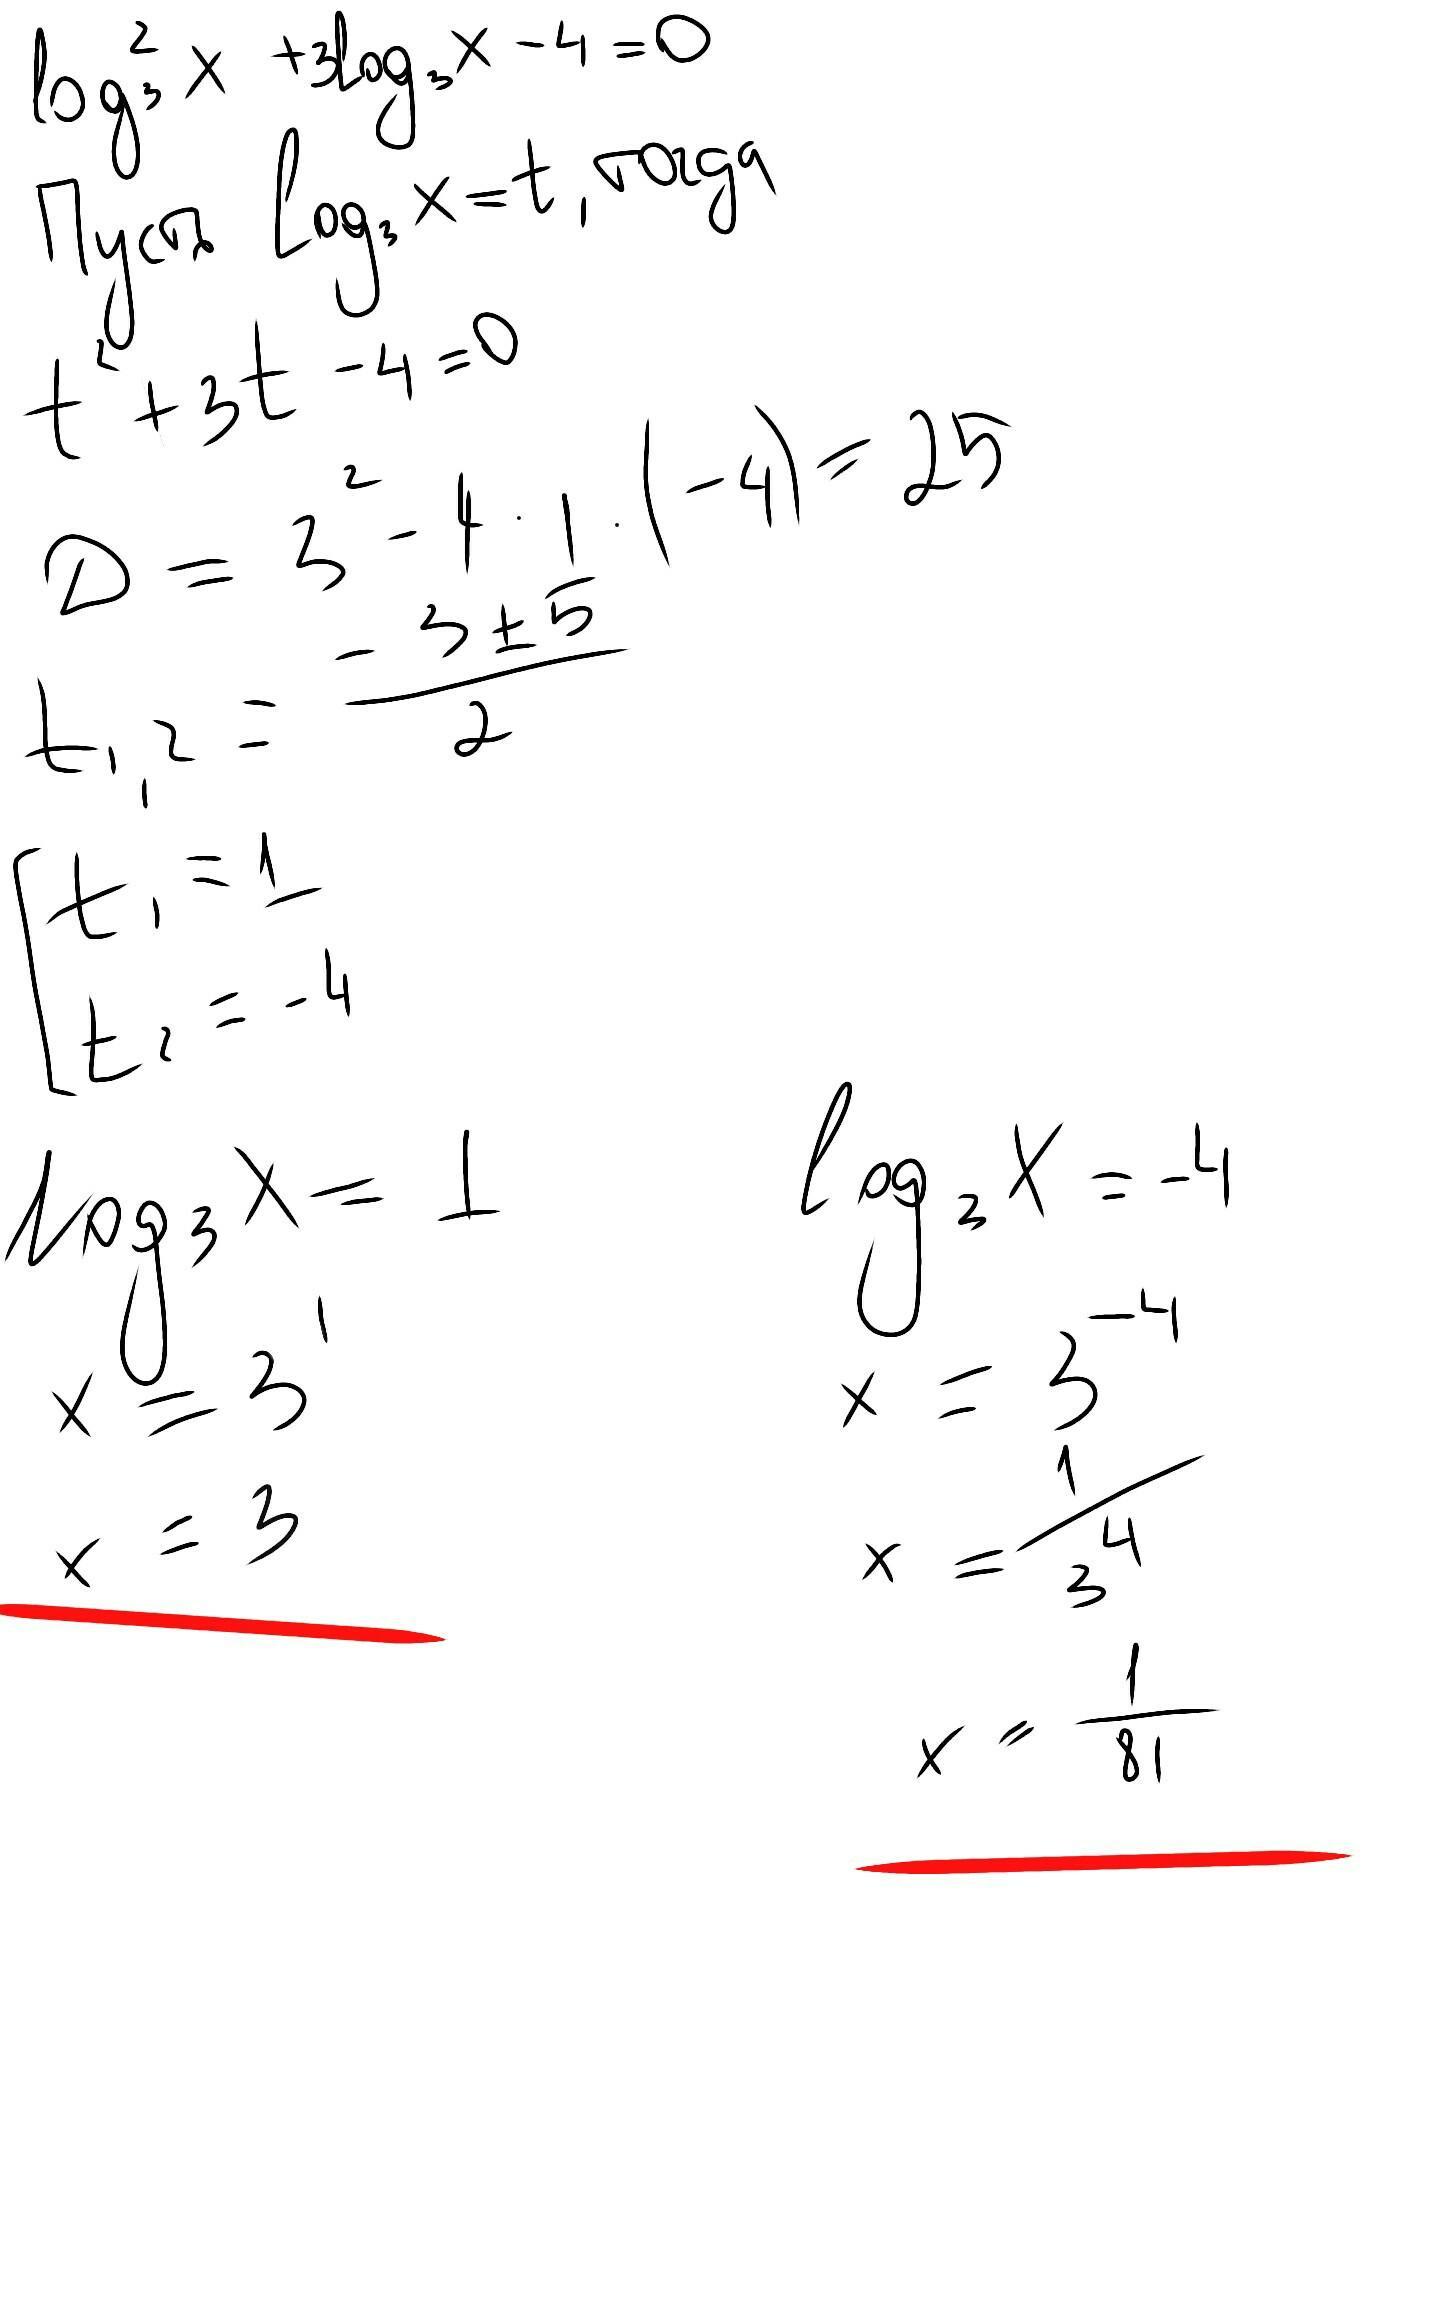 log₃² x + 3log₃ x - 4 = 0
Пусть log₃ x = t, тогда
t² + 3t - 4 = 0
D = 3² - 4 · 1 · (-4) = 25
t₁,₂ = (-3 ± 5)/2
[ t₁ = 1
t₂ = -4
log₃ x = 1
x = 3¹
x = 3
log₃ x = -4
x = 3⁻⁴
x = 1/3⁴
x = 1/81